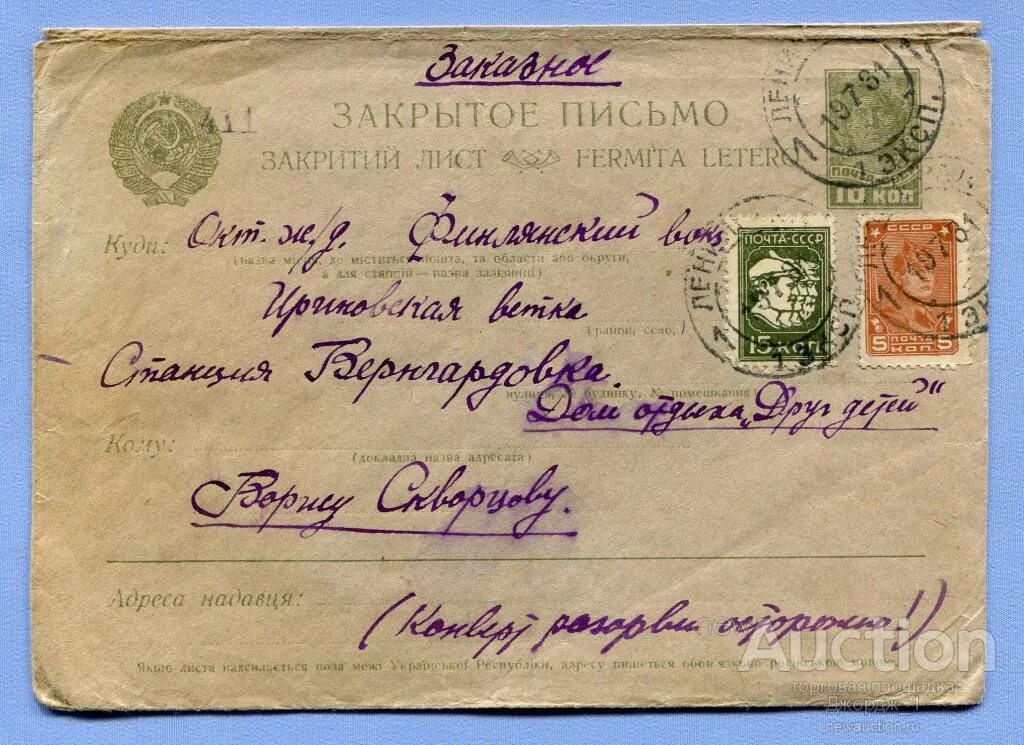 Заказное
411
ЗАКРЫТОЕ ПИСЬМО
ЗАКРИТИЙ ЛИСТ FERMITA LETERO
ПОЧТА
10 КОП
ЛЕНИ
19 7 31
1 ЭКСП.
Куди: Окт. ж/д. Финлянский вокз
(назва місця, де міститься пошта, та області або округи,
а для станцій — назва залізниці)
ПОЧТА-СССР
15 КОП
СССР
ПОЧТА
5 КОП. 5
19 7 31
Ириновская ветка
(район, село,)
Станция Вернгардовка.
вулиця, № будинку, № помешкання)
Дом отдыха „Друг детей"
Кому:
(докладна назва адресата)
Борису Скворцову.
Адреса надавця:
(Конверт разорви осторожно!)
Якщо листа надсилається поза межі Української Республіки, адресу пишеться обов'язково російською мовою.
newauction
Auction
торговая площадка
Джордж_1
newauction.ru